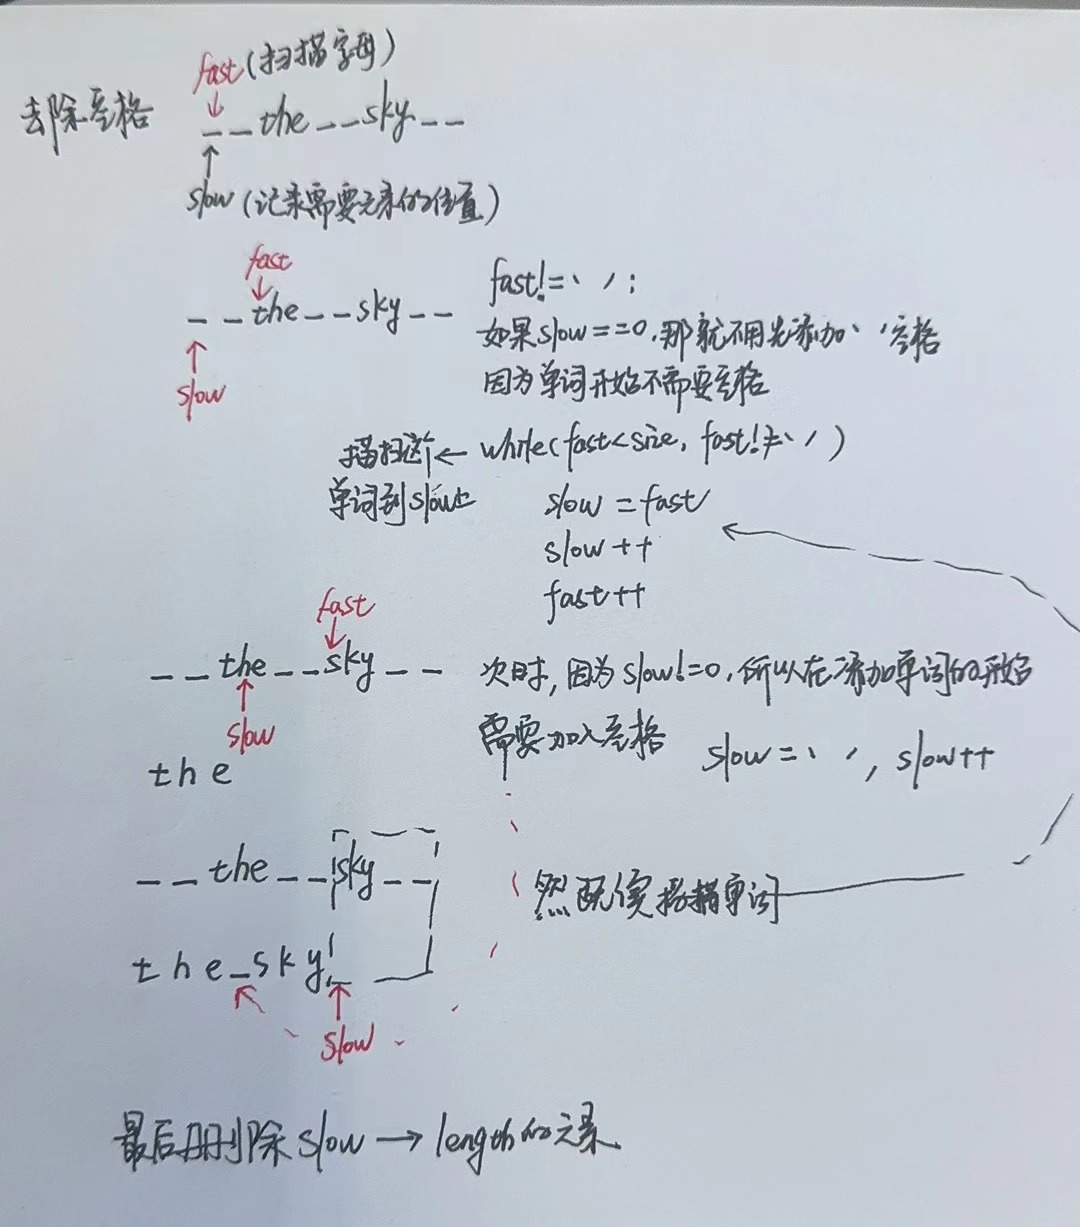 fast(扫描字母)
去除空格 _ _the _ _sky _ _
slow(记录需要元素的位置)
fast
_ _the_ _sky _ _
slow
fast!=' ':
如果slow==0,那就不用先添加' '空格
因为单词开始不需要空格
描扫这个← while(fast<size, fast!=' ')
单词到slow上
slow =fast
slow ++
fast++
fast
_ _the_ _sky _ _
slow
the
次时,因为slow!=0,所以在添加单词的开始
需要加入空格
slow=' ', slow++
_ _the_ _sky_ _
the_sky_
slow
单词
最后删除slow→length的元素